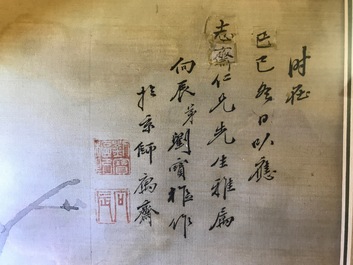 时在
己巳冬日以應
志齋仁兄先生雅屬
向辰弟劉寶權作
於京師寓齋